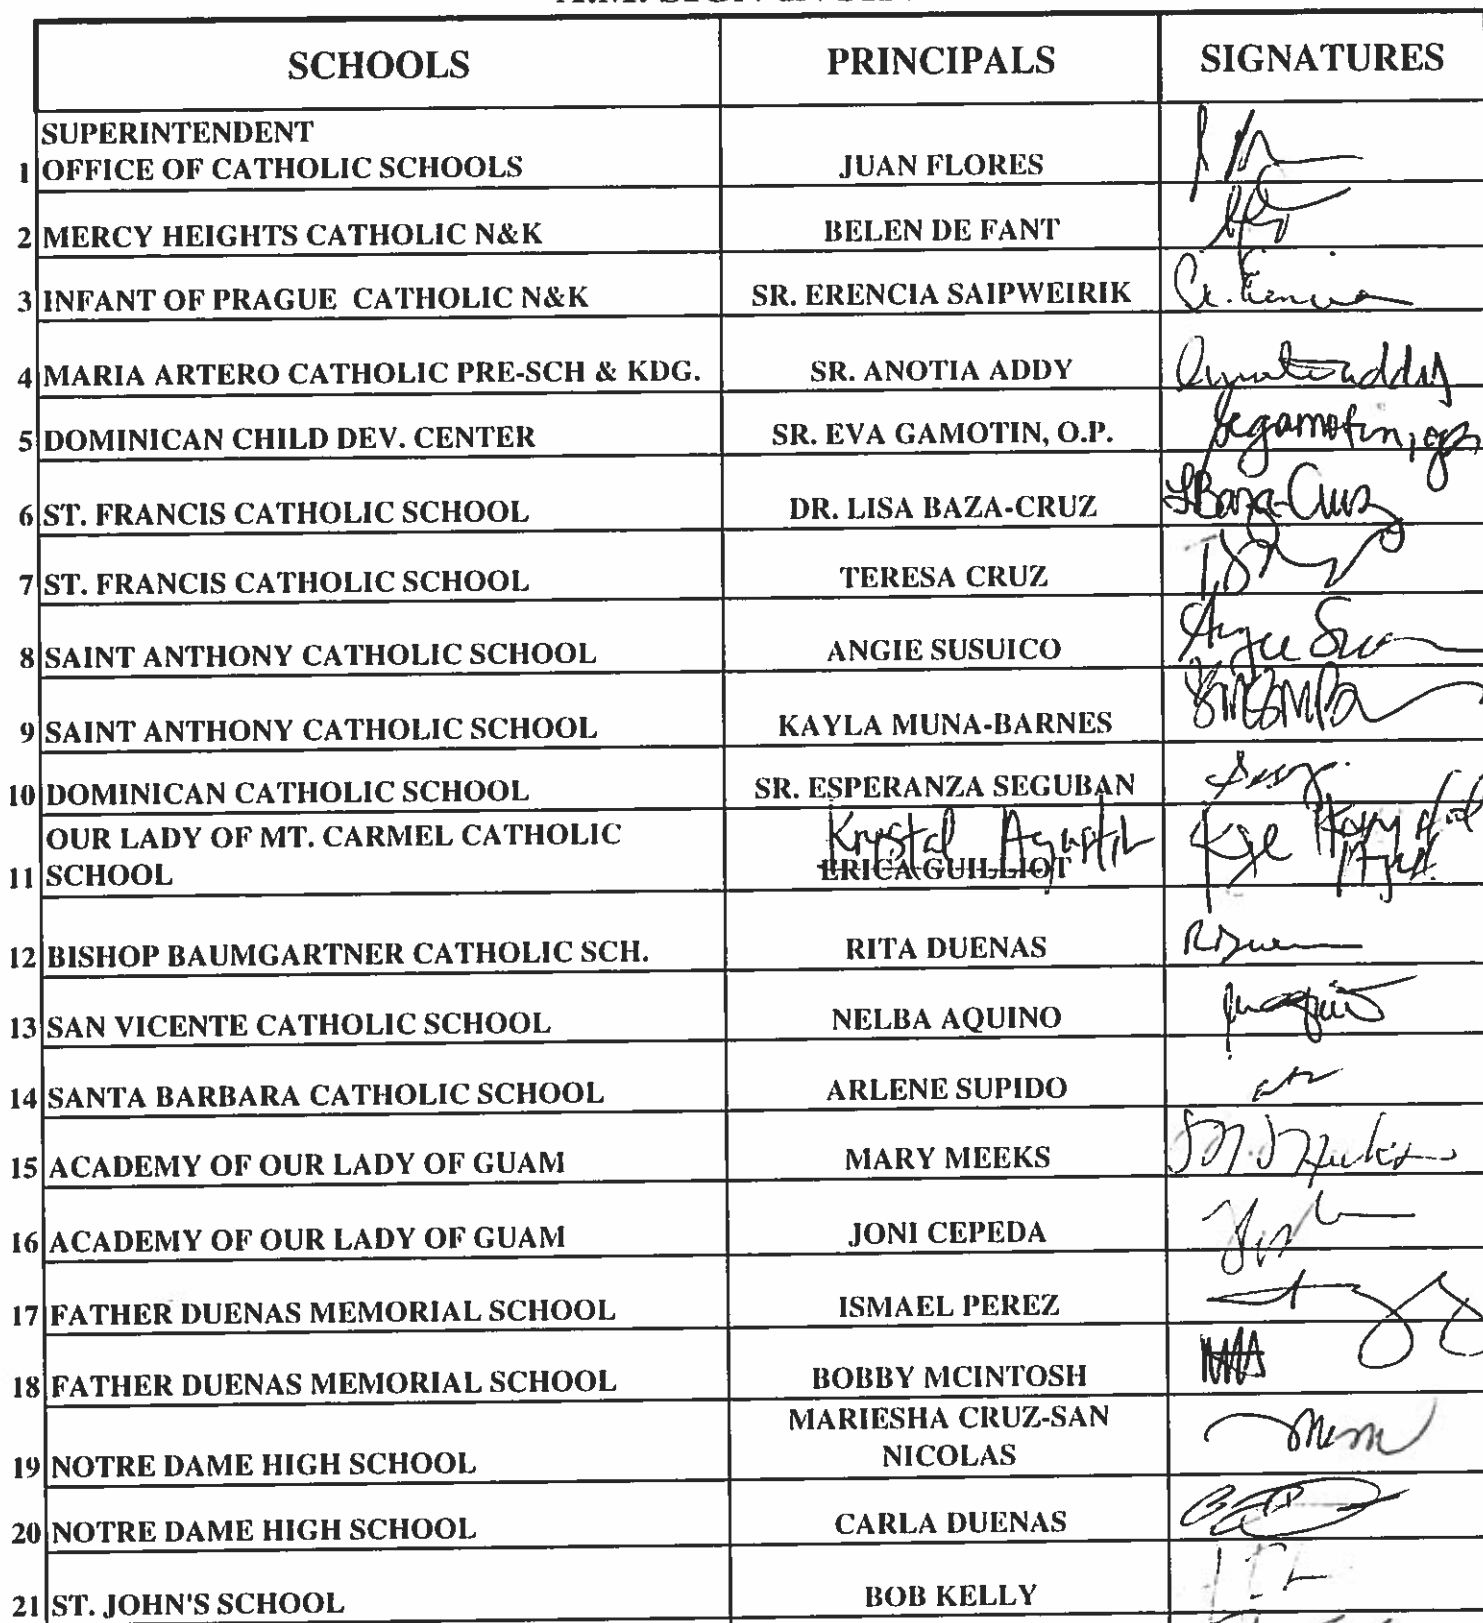 SCHOOLS PRINCIPALS SIGNATURES
SUPERINTENDENT
1 OFFICE OF CATHOLIC SCHOOLS JUAN FLORES
2 MERCY HEIGHTS CATHOLIC N&K BELEN DE FANT
3 INFANT OF PRAGUE CATHOLIC N&K SR. ERENCIA SAIPWEIRIK
4 MARIA ARTERO CATHOLIC PRE-SCH & KDG. SR. ANOTIA ADDY
5 DOMINICAN CHILD DEV. CENTER SR. EVA GAMOTIN, O.P. gamotin, op
6 ST. FRANCIS CATHOLIC SCHOOL DR. LISA BAZA-CRUZ LBaza-Cruz
7 ST. FRANCIS CATHOLIC SCHOOL TERESA CRUZ
8 SAINT ANTHONY CATHOLIC SCHOOL ANGIE SUSUICO Angie
9 SAINT ANTHONY CATHOLIC SCHOOL KAYLA MUNA-BARNES
10 DOMINICAN CATHOLIC SCHOOL SR. ESPERANZA SEGUBAN
OUR LADY OF MT. CARMEL CATHOLIC Krystal Agustin
11 SCHOOL ERICA GUILLIOT
12 BISHOP BAUMGARTNER CATHOLIC SCH. RITA DUENAS
13 SAN VICENTE CATHOLIC SCHOOL NELBA AQUINO
14 SANTA BARBARA CATHOLIC SCHOOL ARLENE SUPIDO
15 ACADEMY OF OUR LADY OF GUAM MARY MEEKS
16 ACADEMY OF OUR LADY OF GUAM JONI CEPEDA
17 FATHER DUENAS MEMORIAL SCHOOL ISMAEL PEREZ
18 FATHER DUENAS MEMORIAL SCHOOL BOBBY MCINTOSH
MARIESHA CRUZ-SAN
19 NOTRE DAME HIGH SCHOOL NICOLAS
20 NOTRE DAME HIGH SCHOOL CARLA DUENAS
21 ST. JOHN'S SCHOOL BOB KELLY